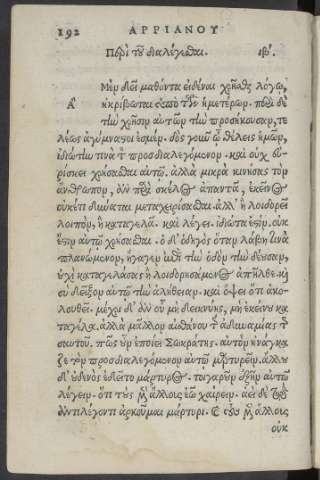 192 ΑΡΡΙΑΝΟΥ
Περὶ τοῦ διαλέγεσθαι. ιβʹ.
Α
Μὲν δεῖ μαθόντα εἰδέναι χρῆσθαι λόγῳ,
ἠκρίβωται ὑπὸ τῶν ἡμετέρων. περὶ δὲ
τὴν χρῆσιν αὐτῶν τὴν προσήκουσαν, τε
λέως ἀγύμναστοι ἐσμέν. δὸς γοῦν ᾧ θέλεις ἡμῶν,
ἰδιώτην τινὰ τὸν προσδιαλεγόμενον. καὶ οὐχ εὑ-
ρίσκει χρήσασθαι αὐτῷ. ἀλλὰ μικρὰ κινήσας τὸν
ἄνθρωπον, ἂν παρὰ σκέλος ἀπαντᾷ, ἐκεῖνος
οὐκέτι δύναται μεταχειρίσασθαι. ἀλλ' ἢ λοιδορεῖ
λοιπόν, ἢ καταγελᾷ. καὶ λέγει. ἰδιώτα ἐστίν. οὐκ
ἔστιν αὐτῷ χρήσασθαι. ὁ δ' ὁδηγὸς ὅταν λάβῃ τινὰ
πλανώμενον, ἤγαγεν ἐπὶ τὴν ὁδὸν τὴν δέουσαν,
οὐχὶ καταγελάσας ἢ λοιδορησάμενος ἀπῆλθε. καὶ
σὺ δεῖξον αὐτῷ τὴν ἀλήθειαν. καὶ ὄψει ὅτι ἀκο-
λουθεῖ. μέχρι δ' ἂν οὗ μὴ δεικνύῃς, μὴ ἐκείνου κα
ταγέλα. ἀλλὰ μᾶλλον αἰσθάνου τῆς ἀδυναμίας τῆς
σαυτοῦ. πῶς οὖν ἐποίει Σωκράτης. αὐτὸν ἠνάγκα
ζε τὸν προσδιαλεγόμενον αὐτῷ μαρτυρεῖν. ἄλλου
δ' οὐδενὸς ἐδεῖτο μάρτυρος. τοιγαροῦν ἐξῆν αὐτῷ
λέγειν. ὅτι τοὺς μὲν ἄλλους ἐῶ χαίρειν. ἀεὶ δὲ τῷ
ἀντιλέγοντι ἀρκοῦμαι μάρτυρι. καὶ τοὺς μὲν ἄλλους
οὐκ